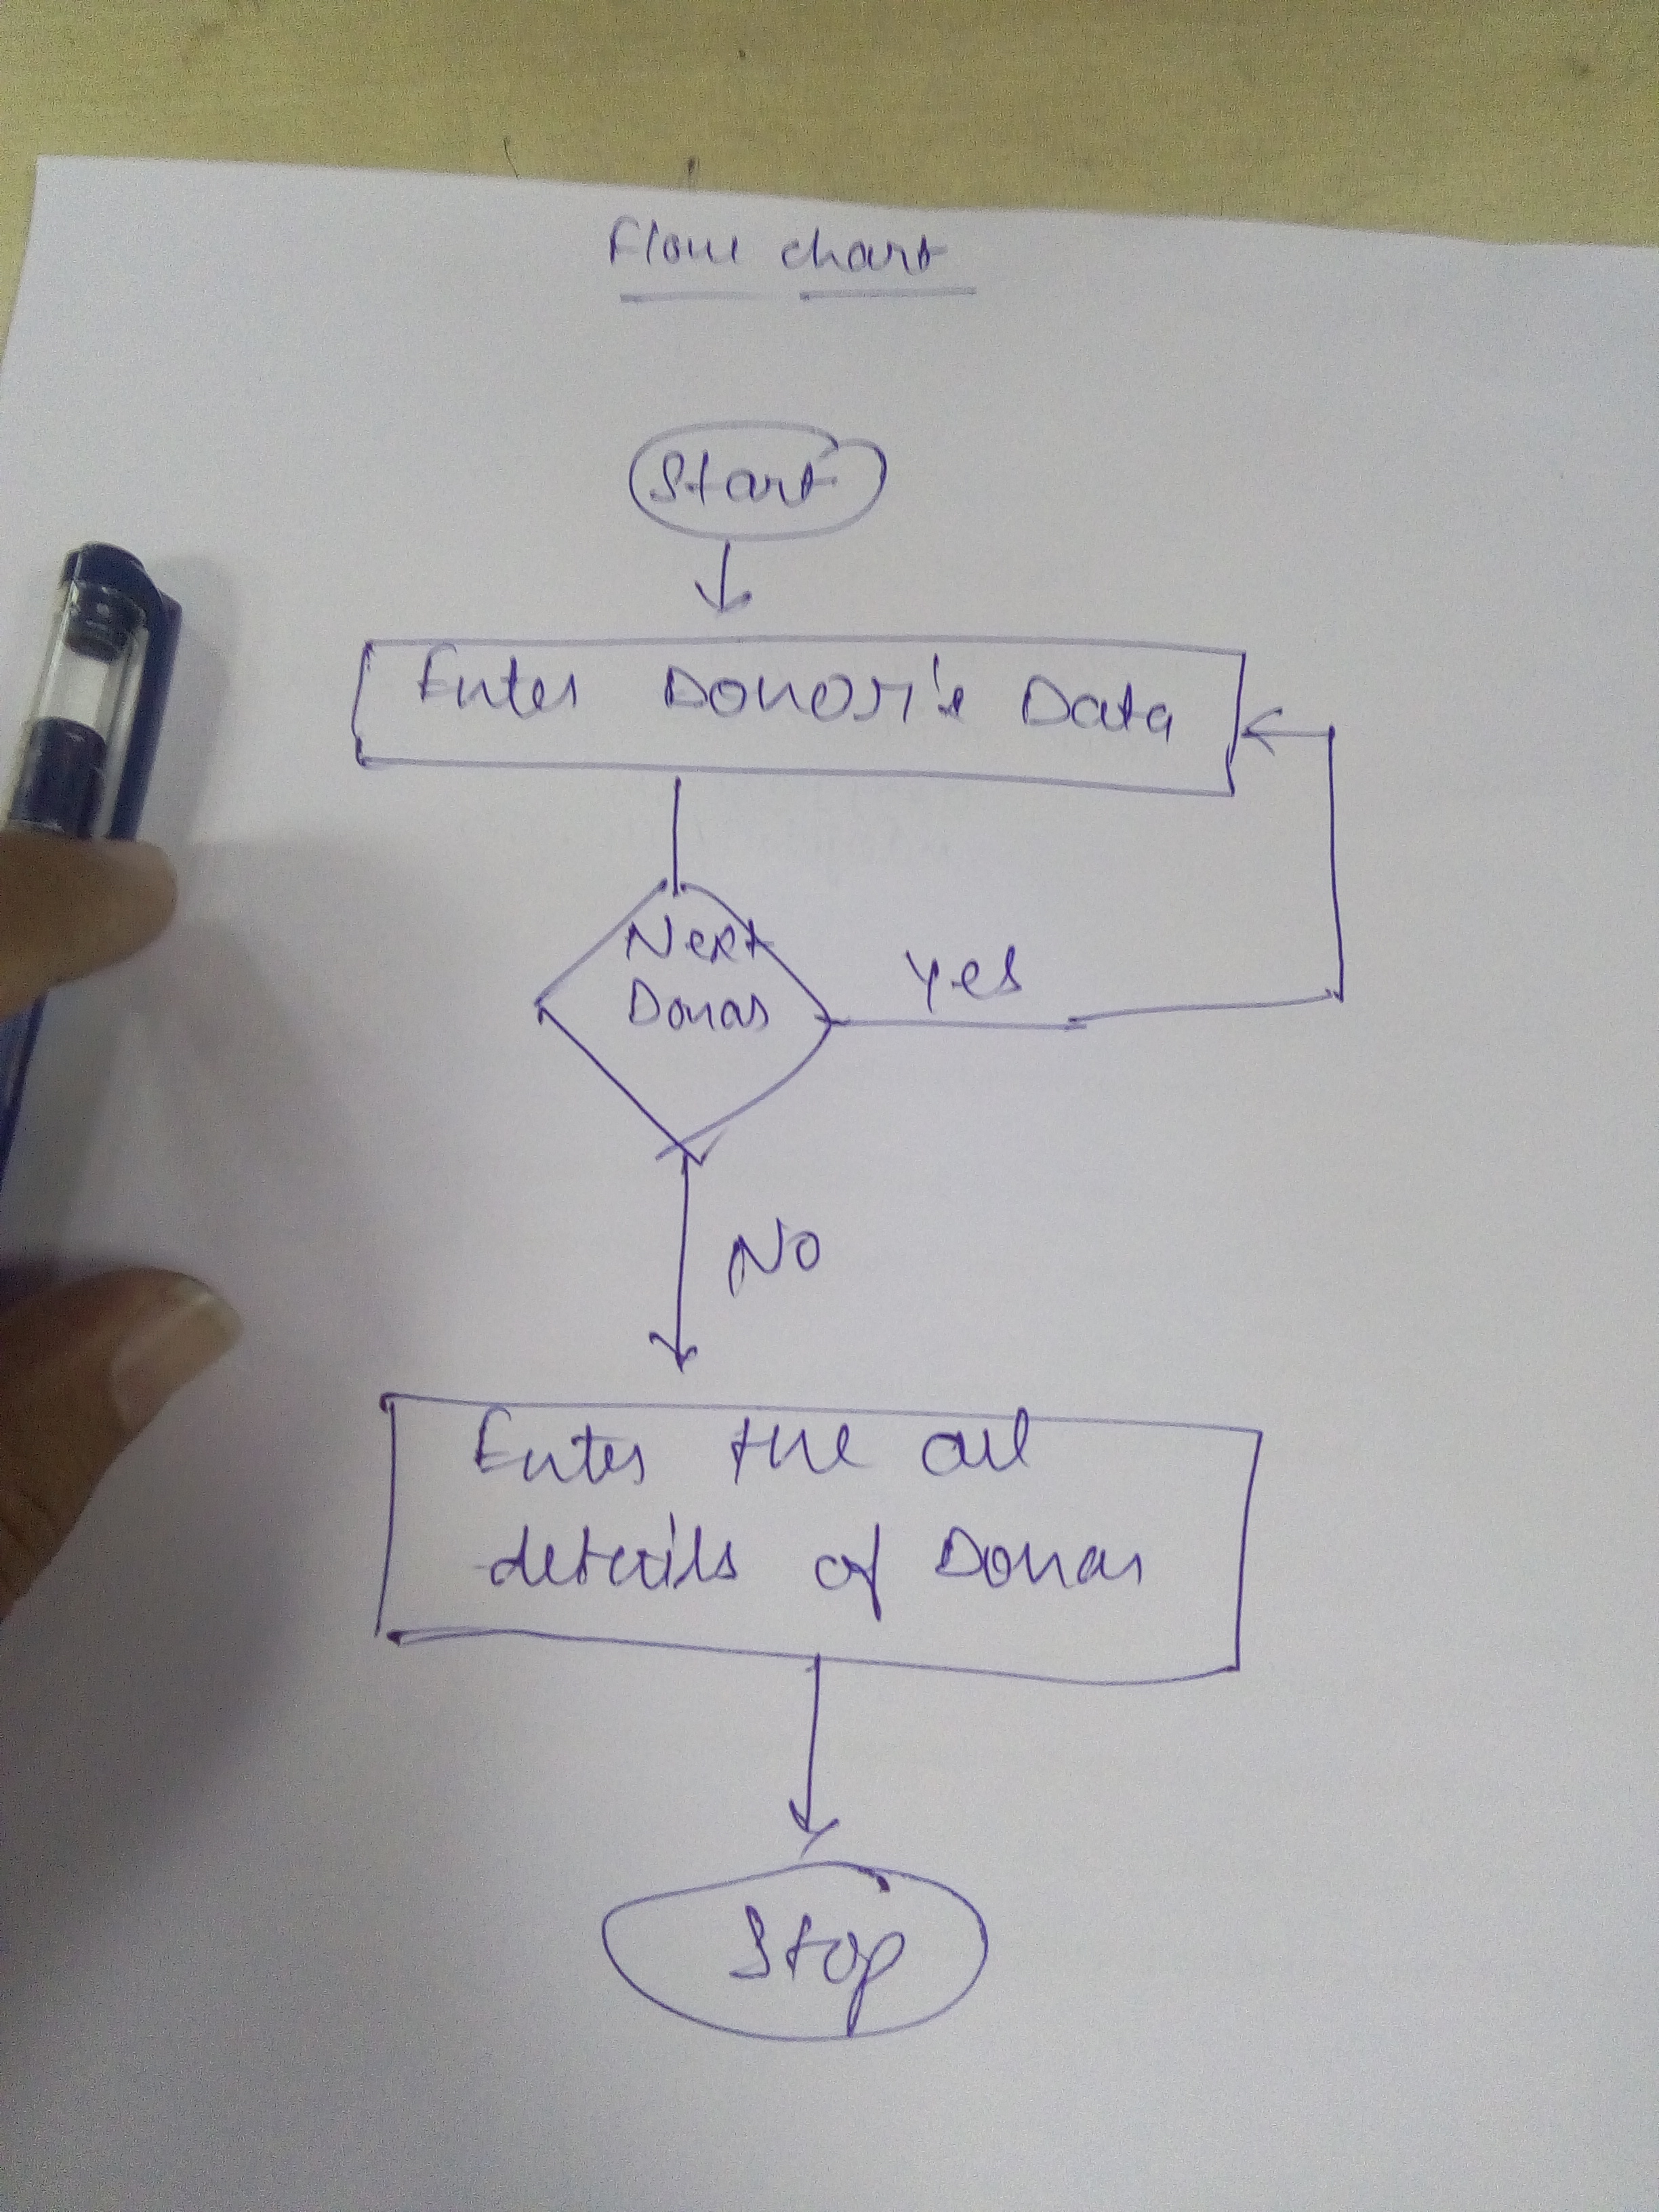 Flow chart
Start
Enter Donor's Data
Next
Donar
Yes
No
Enter the all
details of Donar
Stop